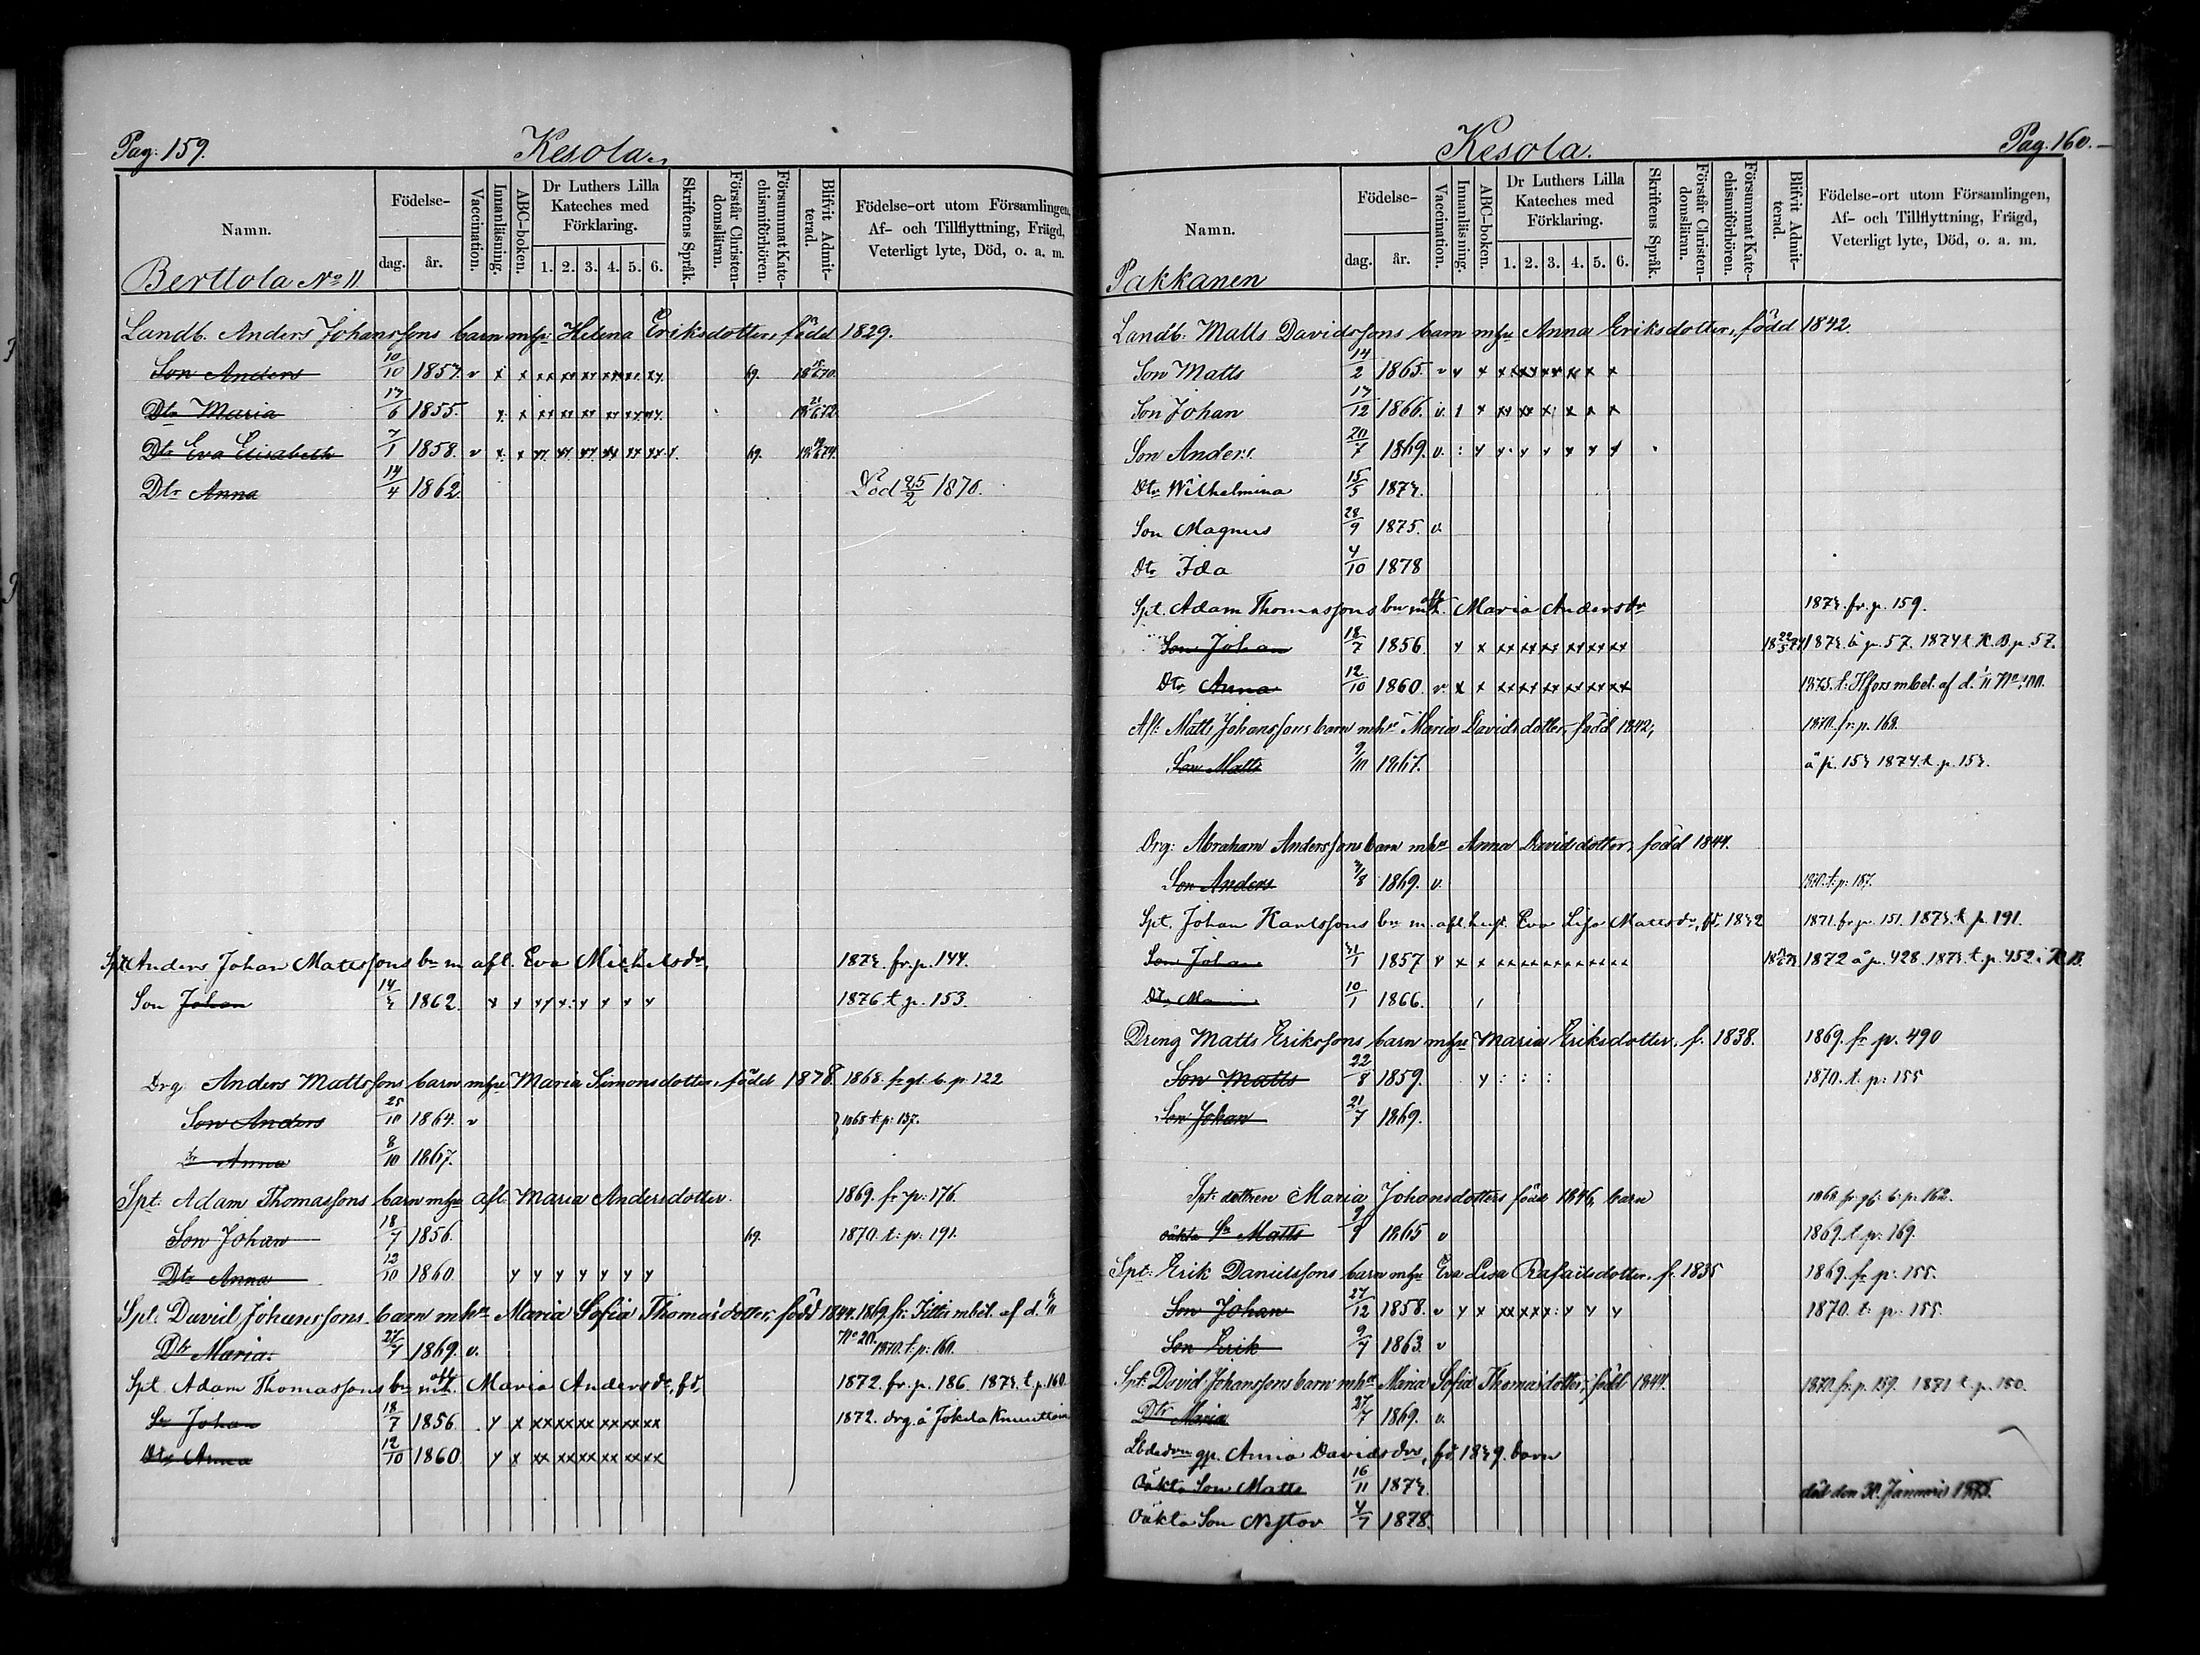 Pag: 159.
Kesola.
Namn.
Födelse-
dag. år.
Vaccination.
Innanläsning.
ABC-boken.
Dr Luthers Lilla Kateches med Förklaring.
1. 2. 3. 4. 5. 6.
Skriftens Språk.
Förstår Christendomsläran.
Försummat Katechismiförhören.
Blifvit Admitterad.
Födelse-ort utom Församlingen,
Af- och Tillflyttning, Frägd,
Veterligt lyte, Död, o. a. m.
Berttola No 11
Landb. Anders Johanssons barn mhu Helena Eriksdotter, född 1829.
Son Anders 10/10 1857. v x x xx xx xx xx xx xx 69.
Dtr Maria 17/6 1855. x x xx xx xx xx xx xx
Dtr Eva Elisabeth 7/1 1858. v x x 69.
Dtr Anna 14/4 1862. Död 25/2 1870.
Spt Anders Johan Matssons bn m afl. Eva Michelsdr 1873. fr. p. 144.
Son Johan 1862. 1876 t. p. 153.
Drg Anders Mattssons barn mhu Maria Simonsdotter, född 1878. 1868. fr gl. b. p. 122
Son Anders 25/10 1864. v t. p: 137.
Dr Anna 8/10 1867.
Spt. Adam Thomassons barn mhu afl. Maria Andersdotter. 1869. fr. p. 176.
Son Johan 18/7 1856. 69. 1870. t: p: 191.
Dtr Anna 12/10 1860. y y y y y y y
Spt: David Johanssons barn mhu Maria Sofia Thomasdotter, född 1844. 1869. fr. Kittis mbet. af d.
Dtr Maria. 27/7 1869. v. No 20. 1870. t: p: 160.
Spt. Adam Thomassons bn mh. afl Maria Andersdr, fd. 1872. fr. p. 186. 1873. t. p. 160
Sn Johan 18/7 1856. y x xx xx xx xx xx xx 1872. drg. å Jokela Knuuttain
Dtr Anna 12/10 1860. y x xx xx xx xx xx xx
Pag. 160.
Kesola.
Namn.
Födelse-
dag. år.
Vaccination.
Innanläsning.
ABC-boken.
Dr Luthers Lilla Kateches med Förklaring.
1. 2. 3. 4. 5. 6.
Skriftens Språk.
Förstår Christendomsläran.
Försummat Katechismiförhören.
Blifvit Admitterad.
Födelse-ort utom Församlingen,
Af- och Tillflyttning, Frägd,
Veterligt lyte, Död, o. a. m.
Pakkanen
Landb: Matts Davidssons barn mhu Anna Eriksdotter, född 1842.
Son Matts 14/2 1865. v
Son Johan 17/12 1866. v.
Son Anders 20/7 1869. v.
Dtr Wilhelmina 15/5 1873.
Son Magnus 28/9 1875. v.
Dtr Ida 4/10 1878
Spt. Adam Thomassons bn mh. afl Maria Andersdr 1873. fr. p. 159.
Son Johan 18/7 1856. 1873. å p. 57. 1874 t. K. B. p. 57.
Dtr Anna 12/10 1860. v. 1875. t: Hfors mbet. af d.
Afl: Matts Johanssons barn mhu Maria Davidsdotter, född 1842, 1870. fr: p. 168.
Son Matts 9/10 1867. å p. 153 1874. t. p. 153.
Drg: Abraham Anderssons barn mhu Anna Davidsdotter, född 1844.
Son Anders 3/8 1869. v. 1870. t: p: 187.
Spt. Johan Karlssons bn m. afl. hust. Eva Lisa Mattsdr, fd. 1832 1871. fr. p. 151. 1873. t. p. 191.
Son Johan 1857 1872 å p. 428. 1873. t. p. 452 i K. B.
Dtr 10/1 1866.
Dreng Matts Erikssons barn mhu Maria Eriksdotter, f. 1838. 1869. fr p. 490
Son Matts 22/8 1859. y : : : 1870. t: p: 155
Son Johan 21/7 1869.
Spt: dottren Maria Johansdotters född 1846, barn 1868. fr. gl: b: p: 162.
oäkta Sn Matts 9/9 1865 v 1869. t. p: 169.
Spt: Erik Danielssons barn mhu Eva Lisa Rafaelsdotter, f. 1835 1869. fr p: 155.
Son Johan 27/12 1858. v 1870. t: p: 155.
Son Erik 9/7 1863. v
Spt: David Johanssons barn mhu Maria Sofia Thomasdotter, född 1844. 1870. fr: p. 159. 1871 t. p. 180.
Dtr Maria 27/7 1869. v.
Lbdsdrn gp. Anna Davidsdrs, fd. 1839. barn
Oäkta Son Matts 16/11 1873. död den 30. Januari
Oäkta Son Nestor 4/7 1878.